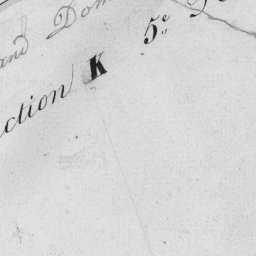 and Dom
ction K 5e